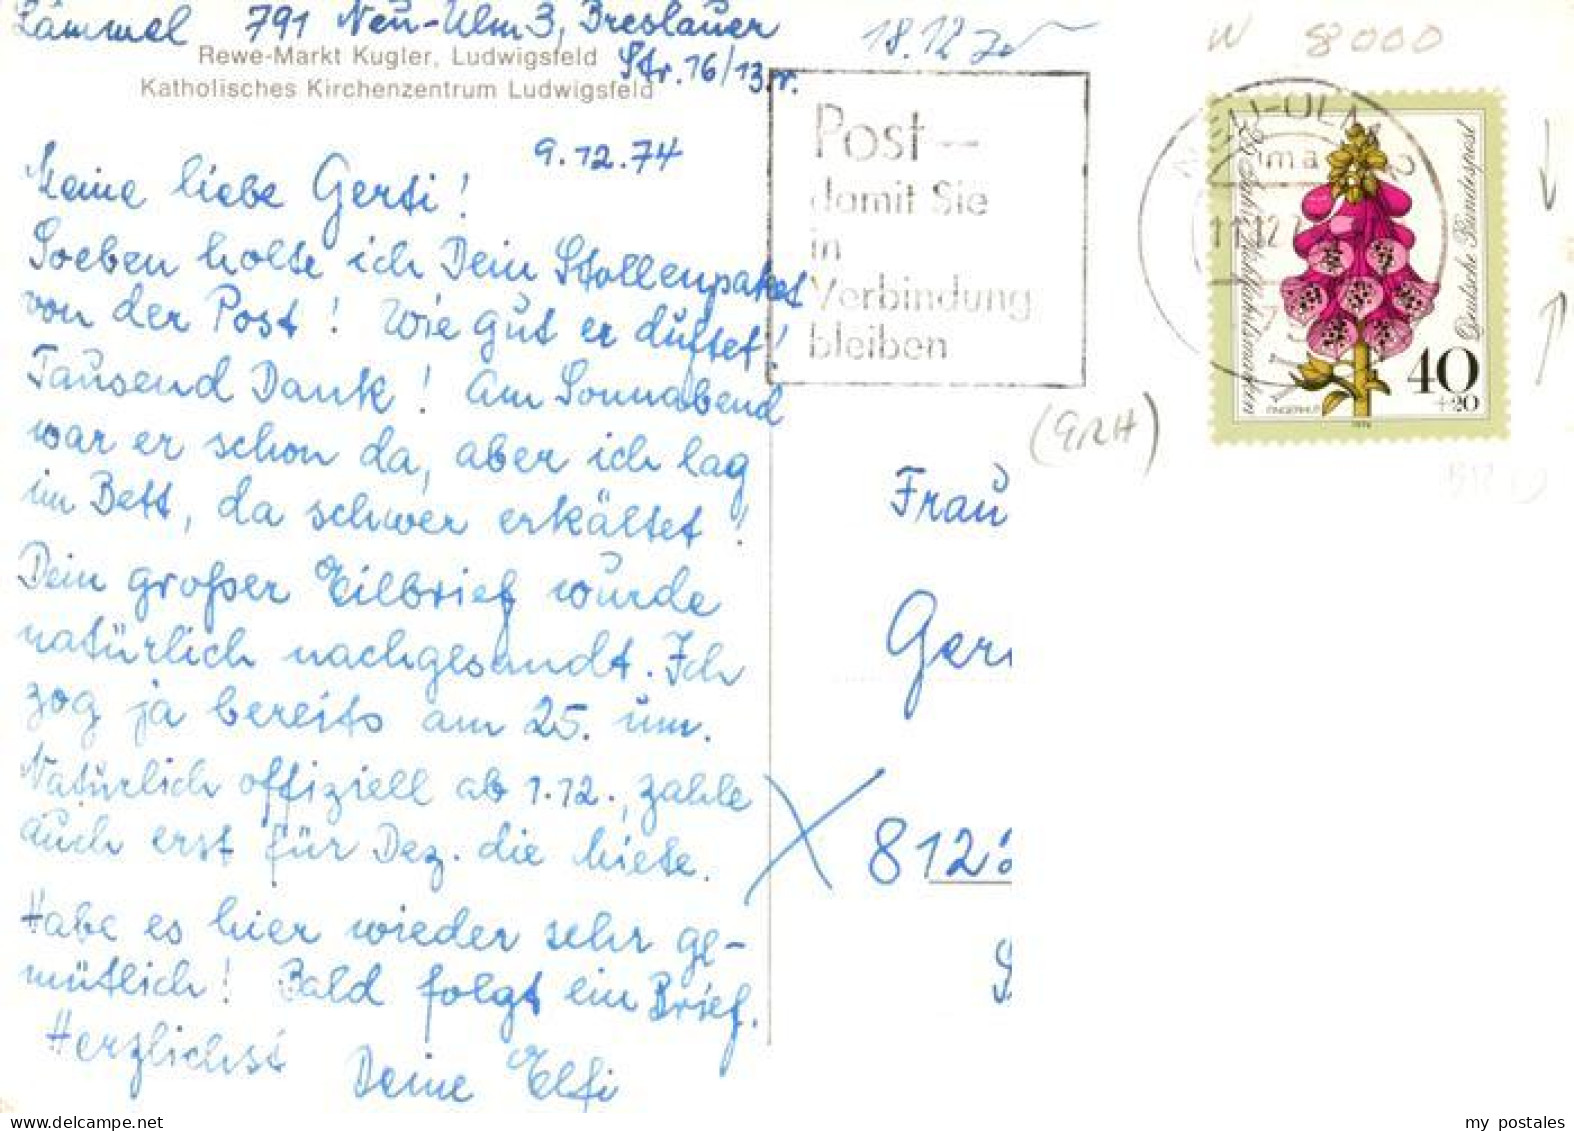 Lämmel 791 Neu-Ulm 3, Breslauer
Str. 16/13.r.
Rewe-Markt Kugler, Ludwigsfeld
Katholisches Kirchenzentrum Ludwigsfeld
9.12.74
Meine liebe Gerti!
Soeben holte ich Dein Stollenpaket
von der Post! Wie gut er duftet!
Tausend Dank! Am Sonnabend
war er schon da, aber ich lag
im Bett, da schwer erkältet!
Dein großer Eilbrief wurde
natürlich nachgesandt. Ich
zog ja bereits am 25. um.
Natürlich offiziell ab 1.12., zahle
auch erst für Dez. die Miete.
Habe es hier wieder sehr ge-
mütlich! Bald folgt ein Brief.
Herzlichst
Deine Elfi
18.12.
W 8000
Post —
damit Sie
in
Verbindung
bleiben
NEU-ULM
Deutsche Bundespost
40
+20
FINGERHUT
1974
(GRH)
Frau
Ger
812
my postales